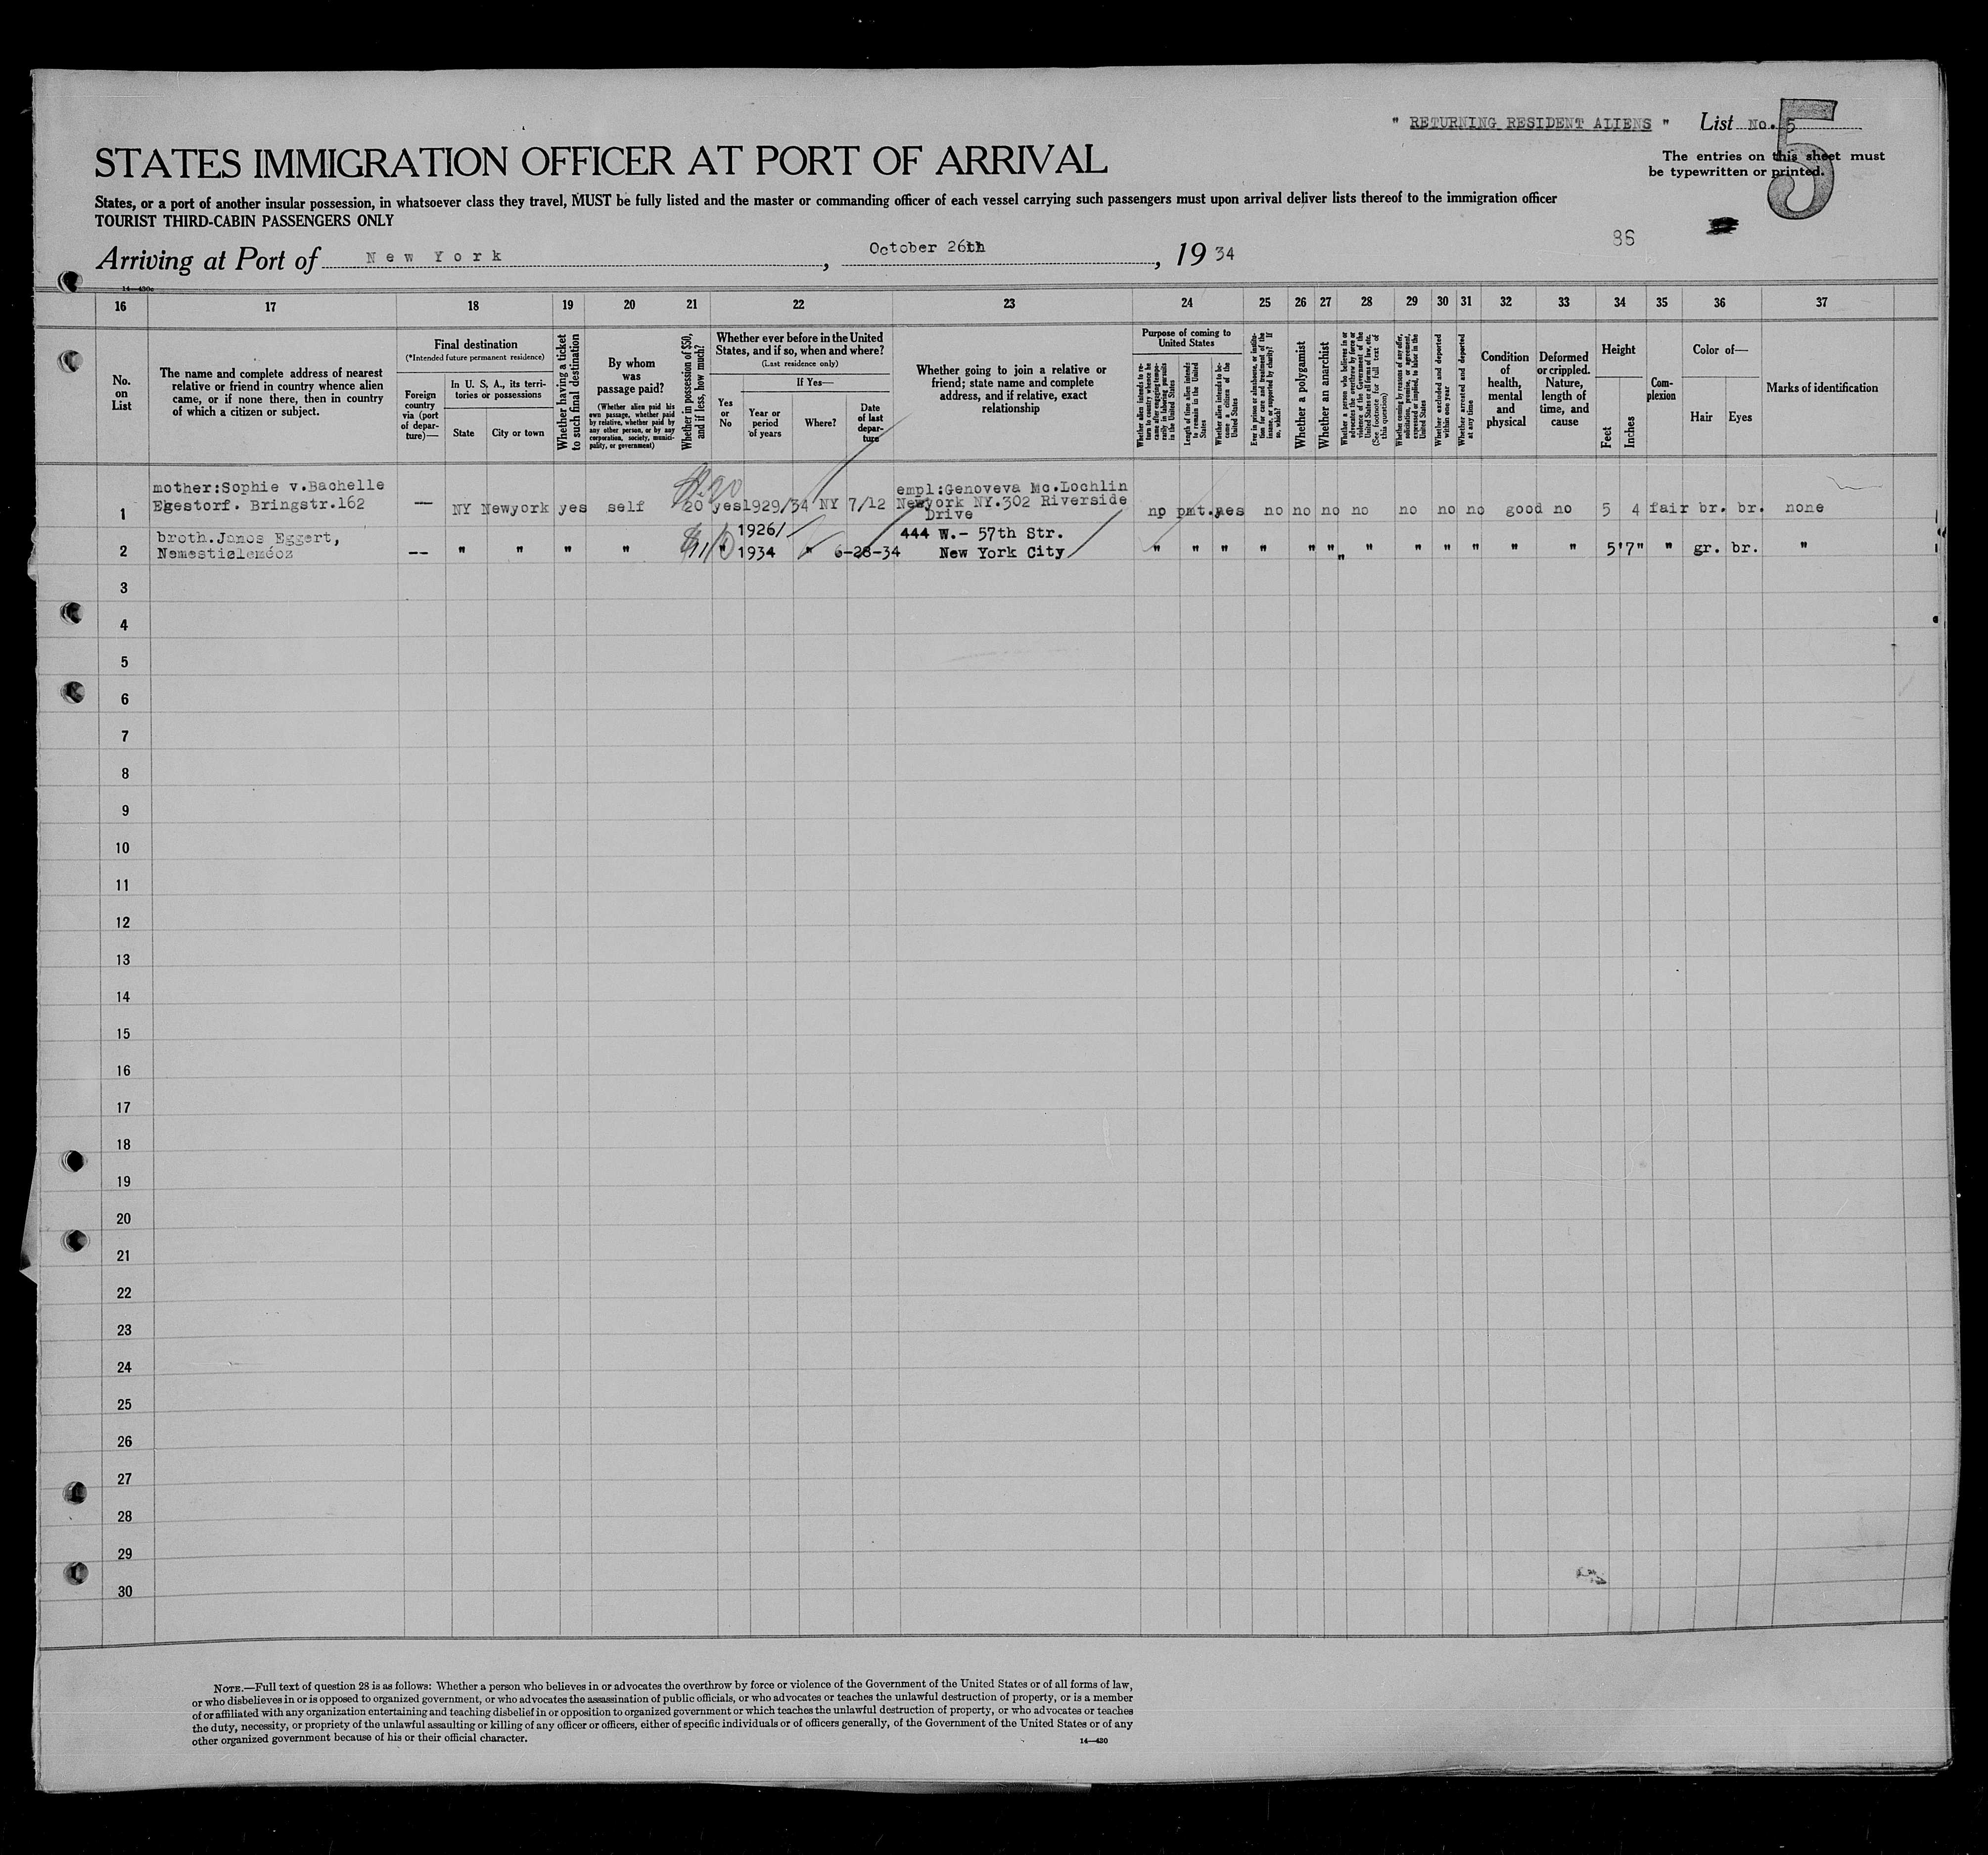 " RETURNING RESIDENT ALIENS " List No. 5
5
The entries on this sheet must
be typewritten or printed.
STATES IMMIGRATION OFFICER AT PORT OF ARRIVAL
States, or a port of another insular possession, in whatsoever class they travel, MUST be fully listed and the master or commanding officer of each vessel carrying such passengers must upon arrival deliver lists thereof to the immigration officer
TOURIST THIRD-CABIN PASSENGERS ONLY
86
Arriving at Port of New York, October 26th, 19 34
14—430c
16 17 18 19 20 21 22 23 24 25 26 27 28 29 30 31 32 33 34 35 36 37
No.
on
List
The name and complete address of nearest
relative or friend in country whence alien
came, or if none there, then in country
of which a citizen or subject.
Final destination
(*Intended future permanent residence)
Foreign
country
via (port
of depar-
ture)—
In U. S. A., its terri-
tories or possessions
State
City or town
Whether having a ticket
to such final destination
By whom
was
passage paid?
(Whether alien paid his
own passage, whether paid
by relative, whether paid by
any other person, or by any
corporation, society, munici-
pality, or government)
Whether in possession of $50,
and if less, how much?
Whether ever before in the United
States, and if so, when and where?
(Last residence only)
Yes
or
No
If Yes—
Year or
period
of years
Where?
Date
of last
depar-
ture
Whether going to join a relative or
friend; state name and complete
address, and if relative, exact
relationship
Purpose of coming to
United States
Whether alien intends to re-
turn to country whence he
came after engaging tempo-
rarily in laboring pursuits
in the United States
Length of time alien intends
to remain in the United
States
Whether alien intends to be-
come a citizen of the
United States
Ever in prison or almshouse, or institu-
tion for care and treatment of the
insane, or supported by charity? If
so, which?
Whether a polygamist
Whether an anarchist
Whether a person who believes in or
advocates the overthrow by force or
violence of the Government of the
United States or all forms of law, etc.
(See footnote for full text of
this question)
Whether coming by reason of any offer,
solicitation, promise, or agreement,
expressed or implied, to labor in the
United States
Whether excluded and deported
within one year
Whether arrested and deported
at any time
Condition
of
health,
mental
and
physical
Deformed
or crippled.
Nature,
length of
time, and
cause
Height
Feet
Inches
Com-
plexion
Color of—
Hair
Eyes
Marks of identification
mother:Sophie v.Bachelle
empl:Genoveva Mc.Lochlin
1 Egestorf. Bringstr.162 — NY Newyork yes self 20 yes 1929/34 NY 7/12 Newyork NY.302 Riverside
Drive
no pmt. yes no no no no no no no good no 5 4 fair br. br. none
broth.Janos Eggert, 1926/ 444 W.- 57th Str.
2 Nemestieleméoz -- " " " " " 1934 " 6-28-34 New York City " " " " " " " " " " " " 5'7" " gr. br. "
3
4
5
6
7
8
9
10
11
12
13
14
15
16
17
18
19
20
21
22
23
24
25
26
27
28
29
30
NOTE.—Full text of question 28 is as follows: Whether a person who believes in or advocates the overthrow by force or violence of the Government of the United States or of all forms of law,
or who disbelieves in or is opposed to organized government, or who advocates the assassination of public officials, or who advocates or teaches the unlawful destruction of property, or is a member
of or affiliated with any organization entertaining and teaching disbelief in or opposition to organized government or which teaches the unlawful destruction of property, or who advocates or teaches
the duty, necessity, or propriety of the unlawful assaulting or killing of any officer or officers, either of specific individuals or of officers generally, of the Government of the United States or of any
other organized government because of his or their official character.
14—430